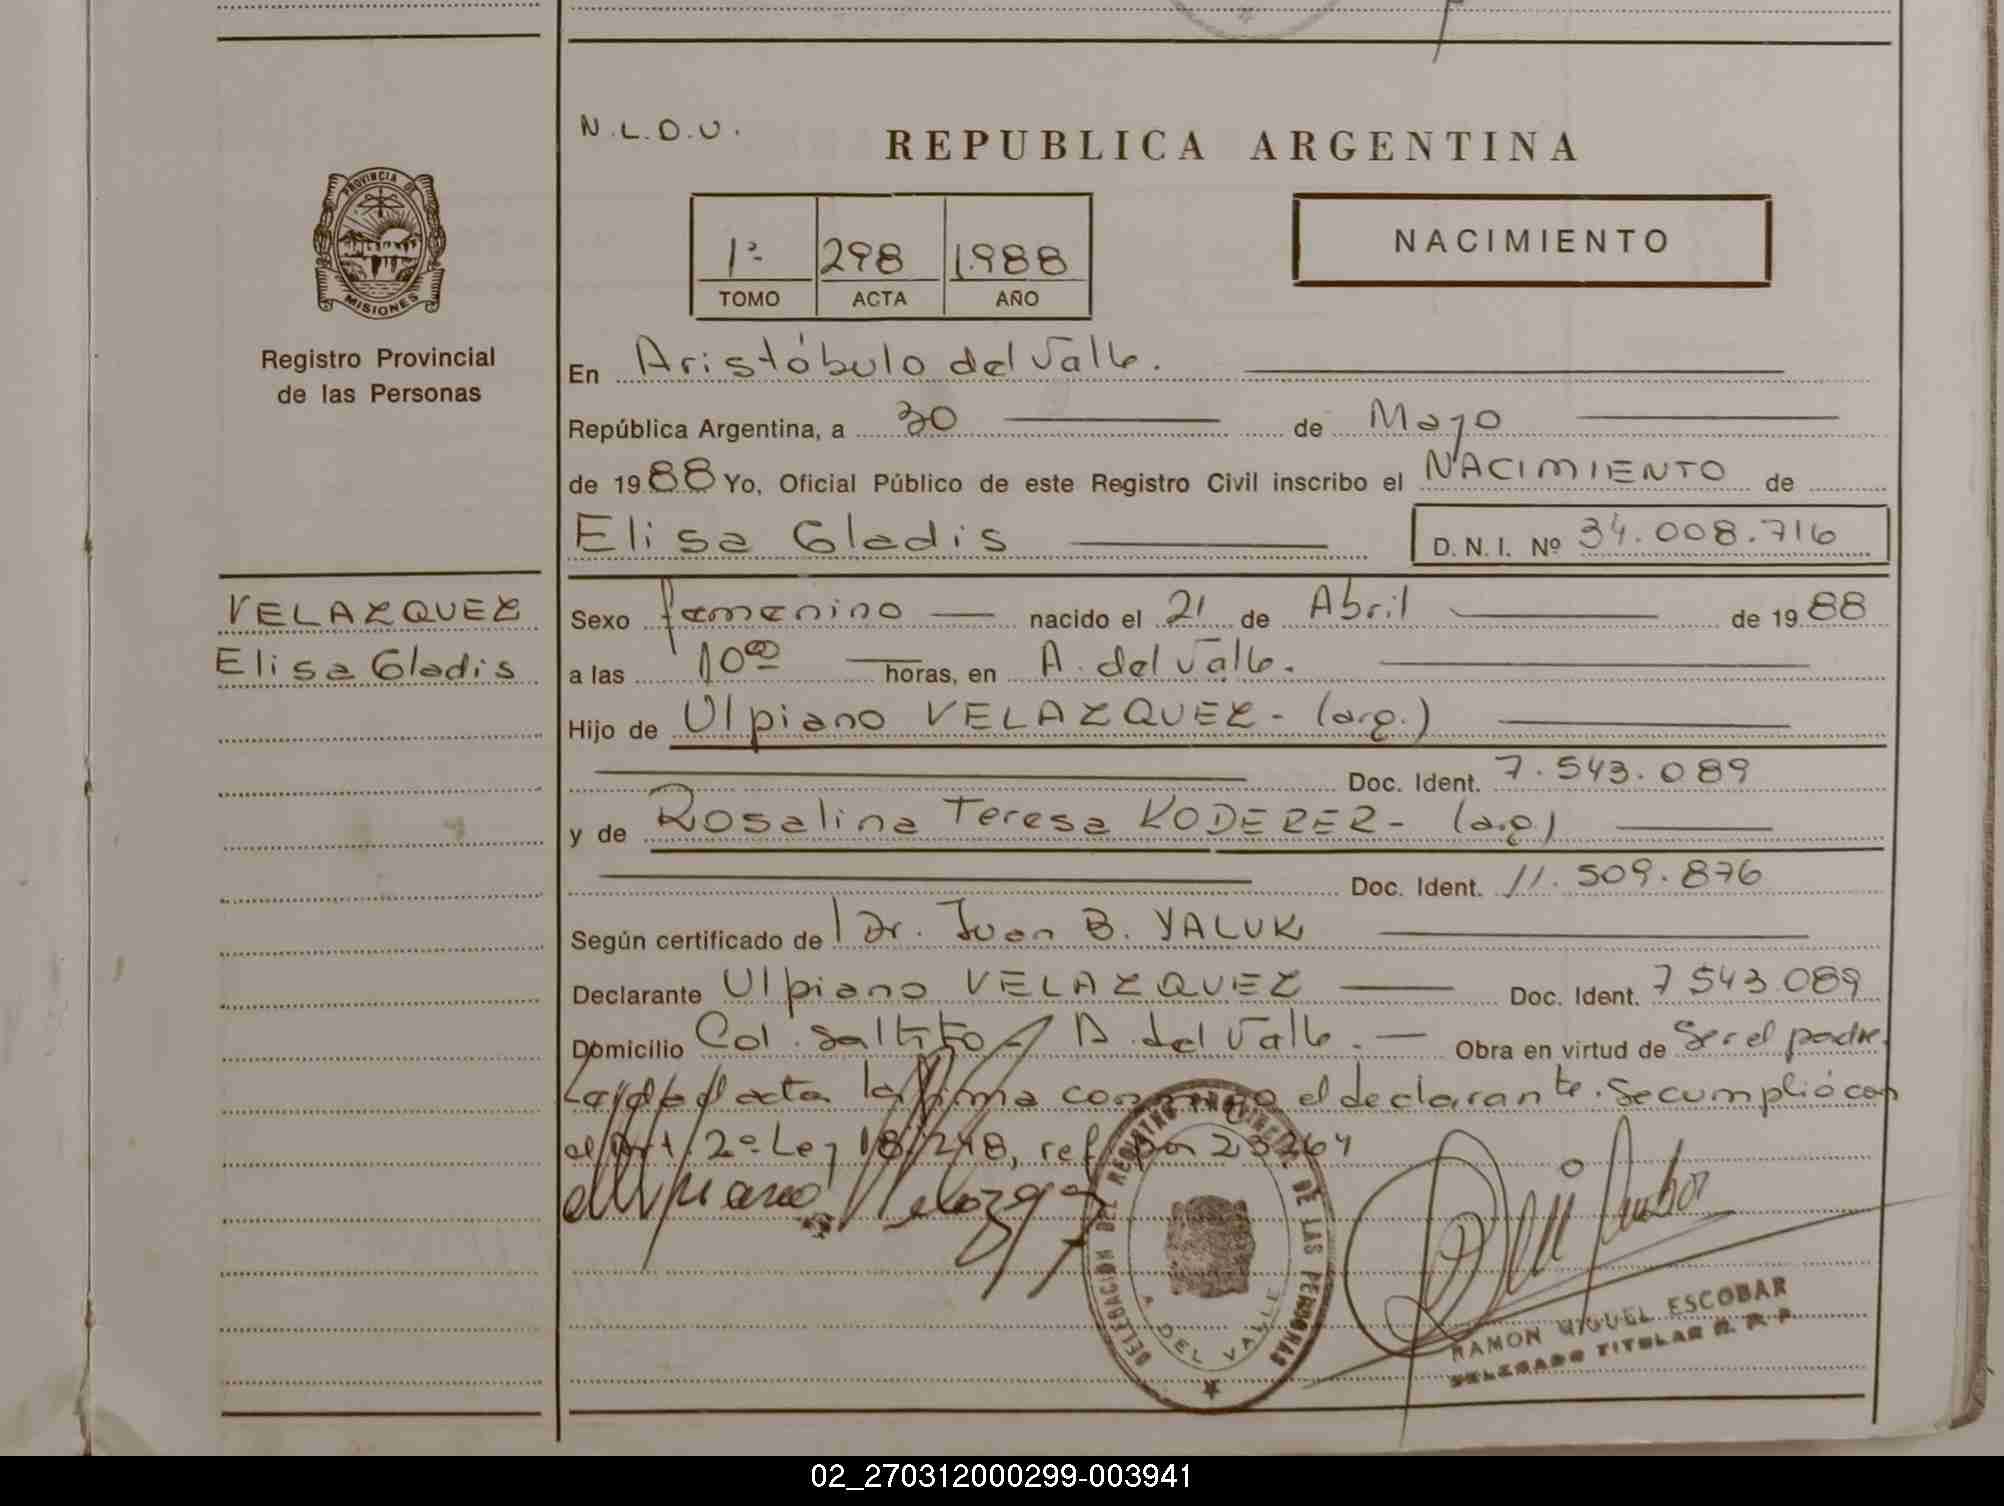 N.L.O.U.
REPUBLICA ARGENTINA
PROVINCIA DE
MISIONES
1º 298 1.988
TOMO ACTA AÑO
NACIMIENTO
Registro Provincial
de las Personas
En Aristóbulo del Valle.
República Argentina, a 30 de Mayo
de 1988 Yo, Oficial Público de este Registro Civil inscribo el NACIMIENTO de
Elisa Gladis D. N. I. Nº 34.008.716
VELAZQUEZ
Elisa Gladis
Sexo femenino nacido el 21 de Abril de 1988
a las 10 00 horas, en A. del Valle.
Hijo de Ulpiano VELAZQUEZ - (arg.)
Doc. Ident. 7.543.089
y de Rosalina Teresa KODERER - (arg.)
Doc. Ident. 11.509.876
Según certificado de Dr. Juan B. YALUK
Declarante Ulpiano VELAZQUEZ Doc. Ident. 7543.089
Domicilio Col. Saltito - A. del Valle. Obra en virtud de Ser el padre.
Leída el acta la firma conmigo el declarante. Se cumplió con
el Art. 2º Ley 18.248, ref. por 23264
Ulpiano Velazquez
DELEGACION DEL REGISTRO PROVINCIAL DE LAS PERSONAS
A. DEL VALLE
RAMON MIGUEL ESCOBAR
DELEGADO TITULAR R. P. P.
02_270312000299-003941